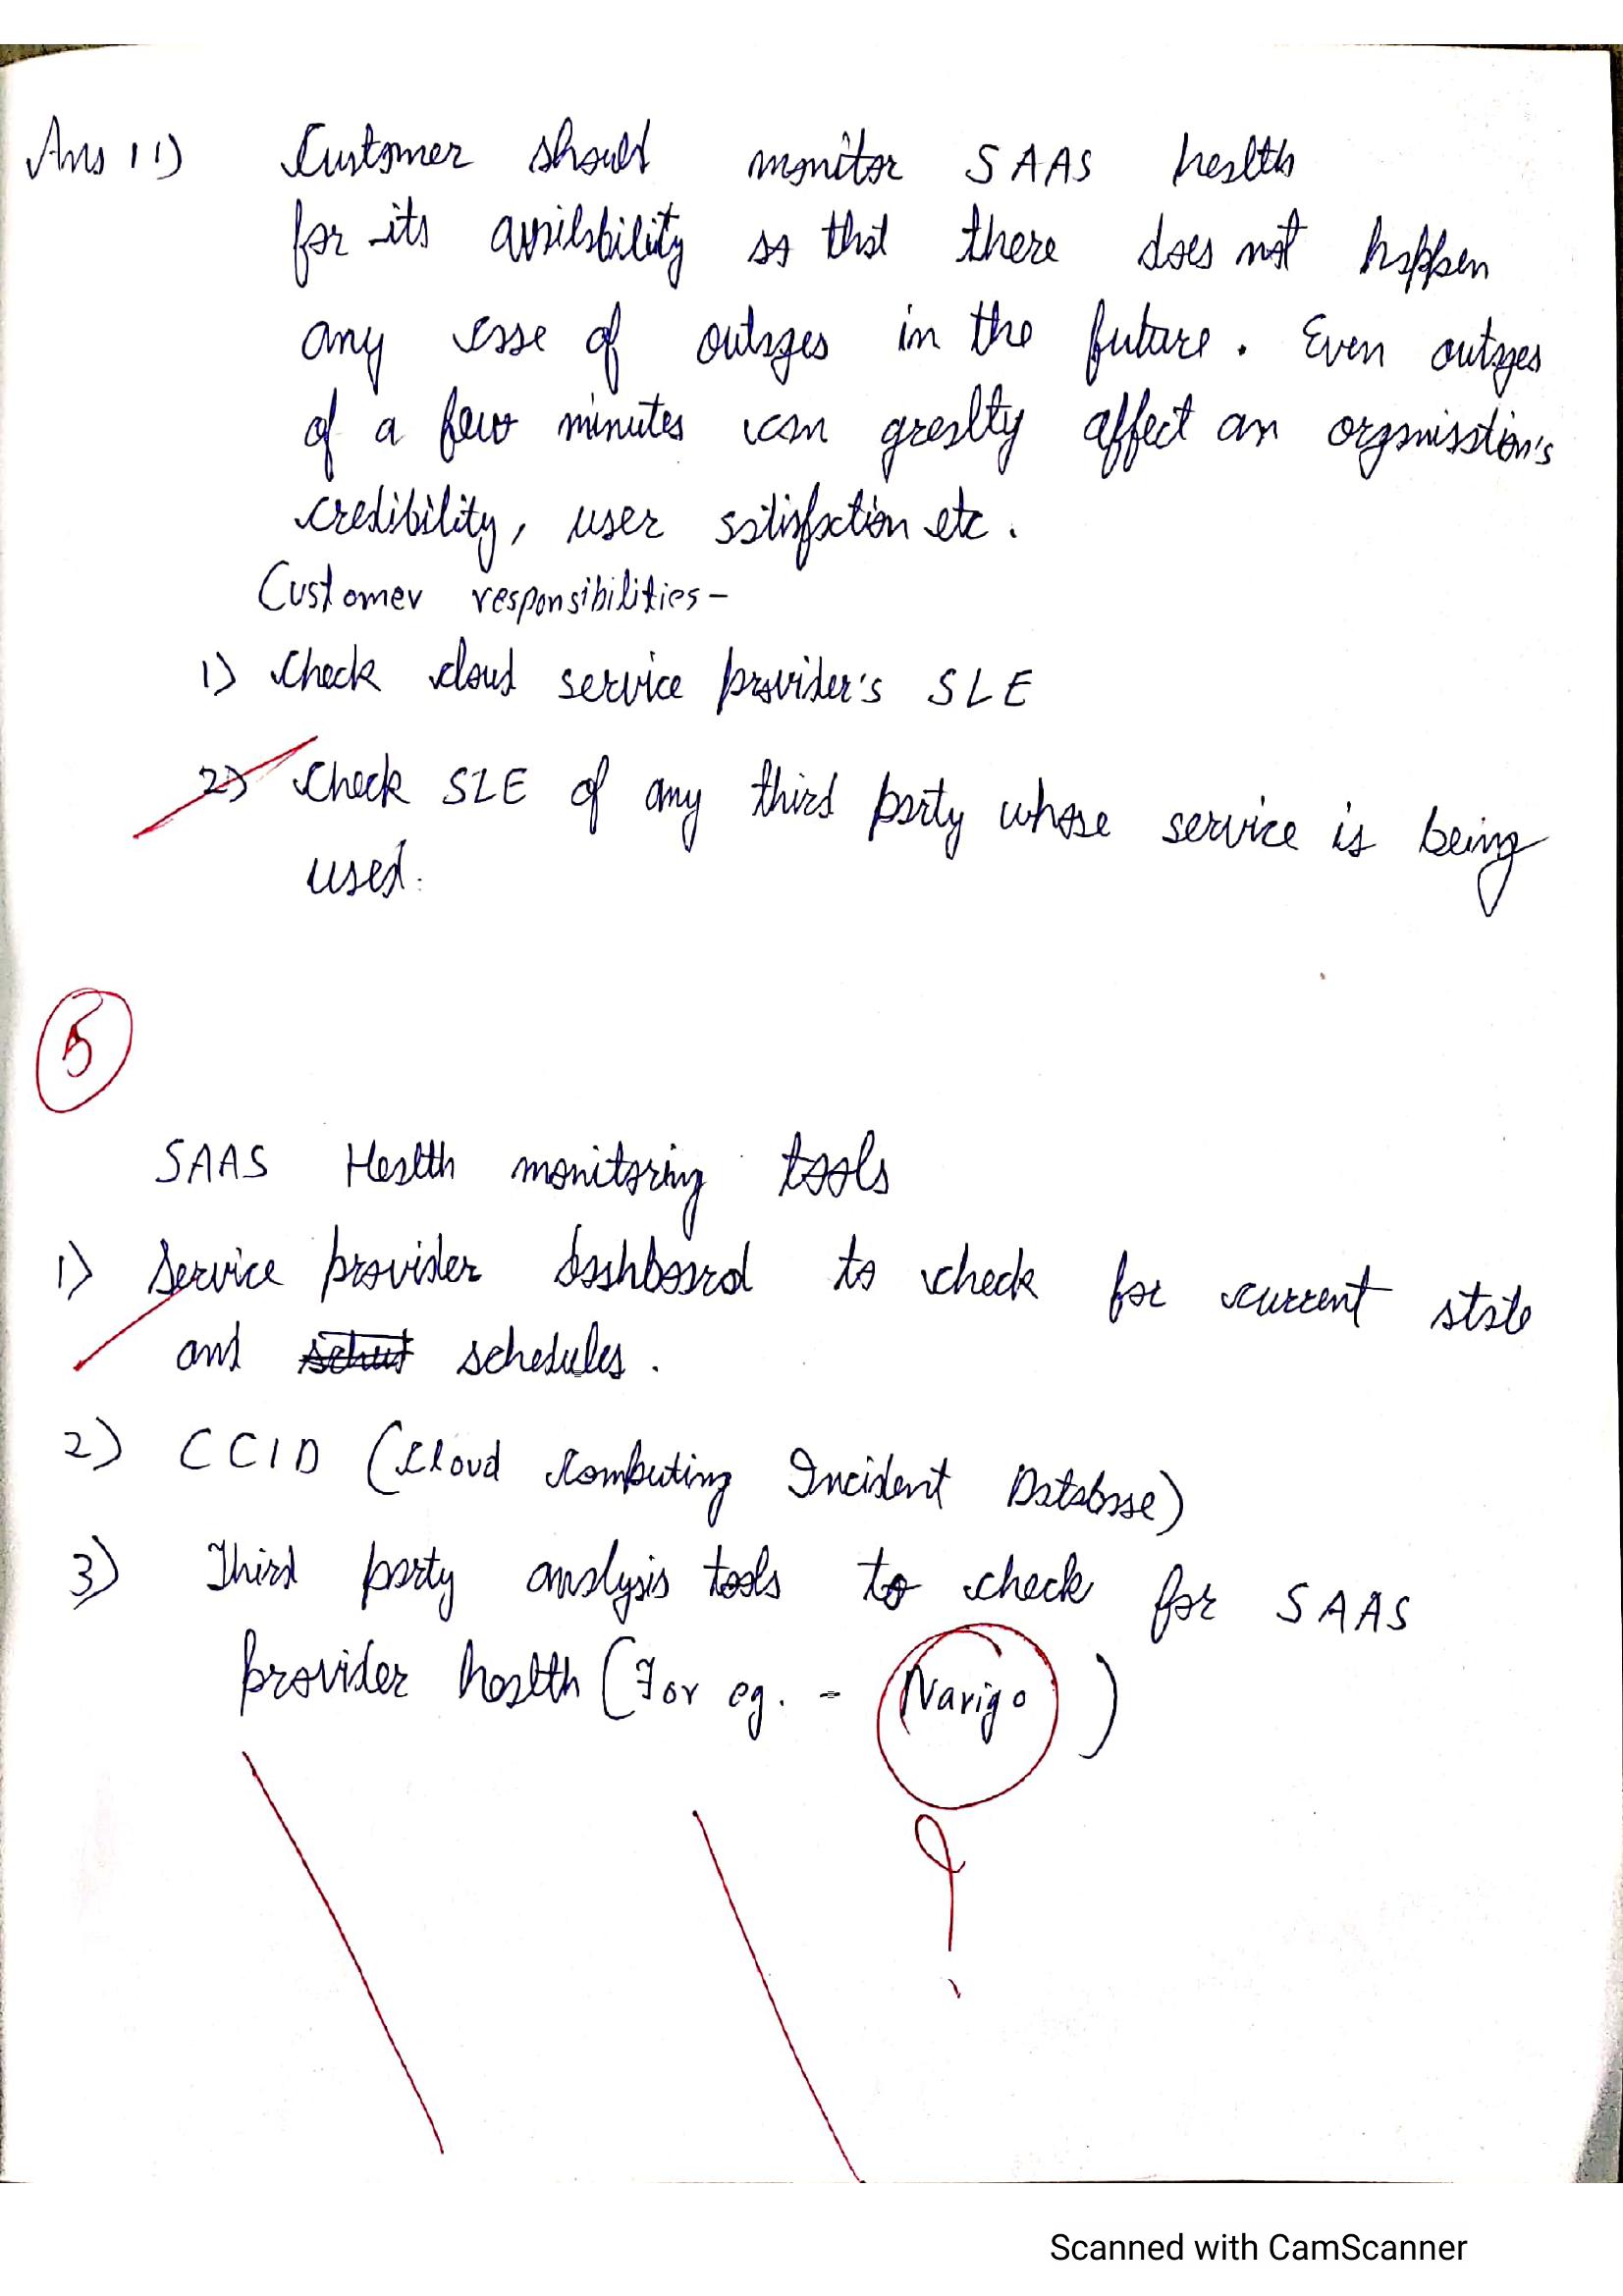 Ans 11) Customer should monitor SAAS health
for its availability so that there does not happen
any case of outages in the future. Even outages
of a few minutes can greatly affect an organisation's
credibility, user satisfaction etc.
Customer responsibilities-
1) Check cloud service provider's SLE
2) Check SLE of any third party whose service is being
used.
5
SAAS Health monitoring tools
1) Service provider dashboard to check for current state
and schedules.
2) CCID (Cloud Computing Incident Database)
3) Third party analysis tools to check for SAAS
provider health (For eg. - Navigo)
?
Scanned with CamScanner